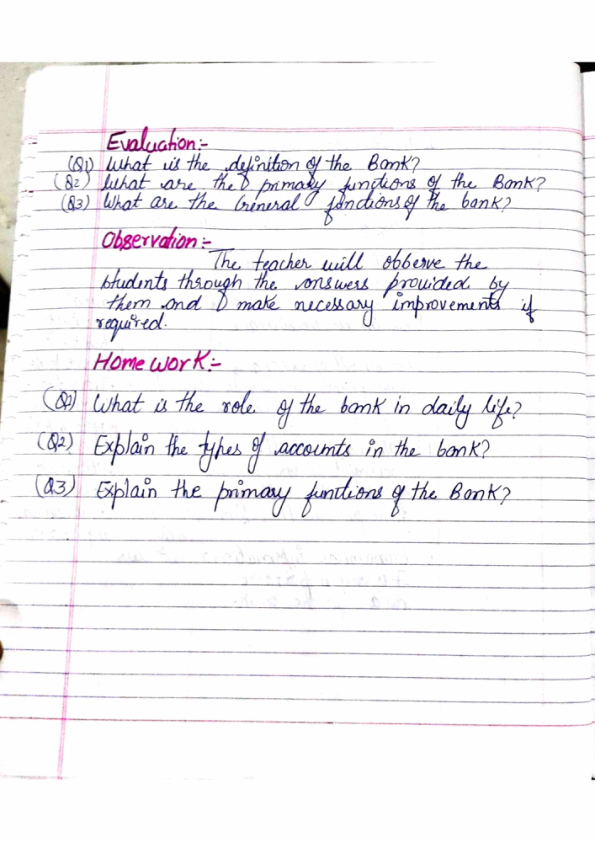 Evaluation:-
(Q1) What is the definition of the Bank?
(Q2) What are the primary functions of the Bank?
(Q3) What are the General functions of the bank?
Observation:-
The teacher will obberve the
students through the answers provided by
them and make necessary improvements if
required.
Home work:-
(Q1) What is the role of the bank in daily life?
(Q2) Explain the types of accounts in the bank?
(Q3) Explain the primary functions of the Bank?